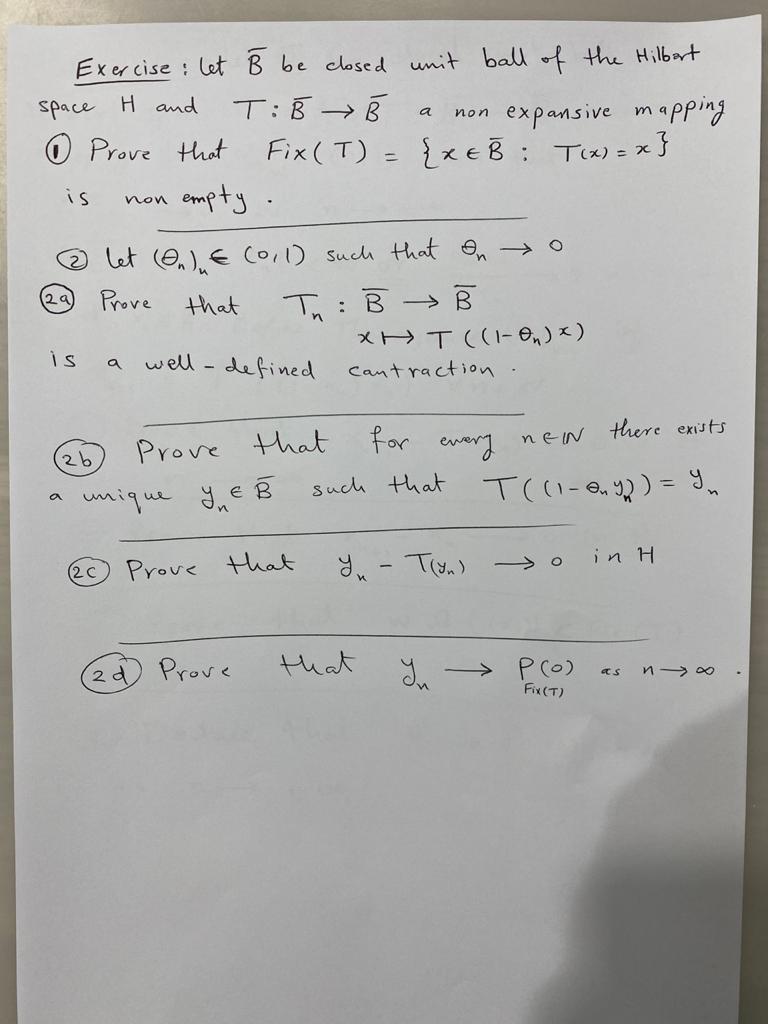 Exercise : let B̄ be closed unit ball of the Hilbert
space H and T : B̄ → B̄ a non expansive mapping
① Prove that Fix(T) = {x ∈ B̄ : T(x) = x}
is non empty .
② let (θn)n ∈ (0,1) such that θn → 0
2a Prove that Tn : B̄ → B̄
x ↦ T((1-θn)x)
is a well-defined cantraction .
2b Prove that for every n ∈ ℕ there exists
a unique yn ∈ B̄ such that T((1-θn yn)) = yn
2c Prove that yn - T(yn) → 0 in H
2d Prove that yn → P(0) as n → ∞ .
Fix(T)